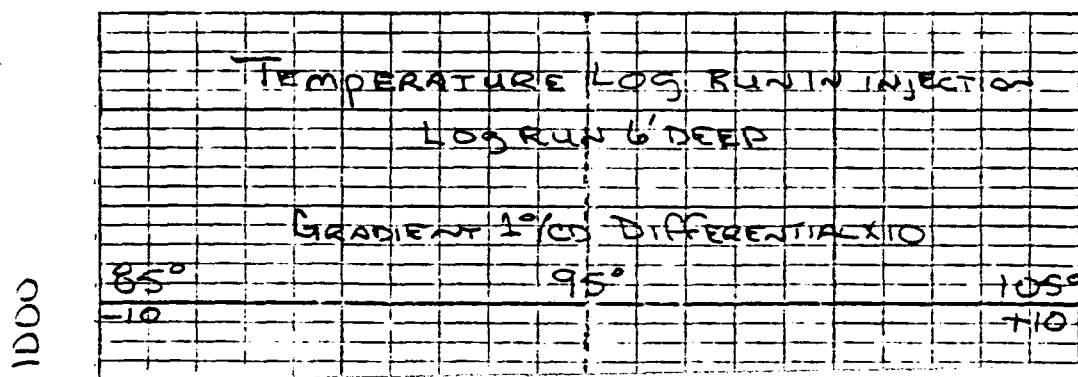 TEMPERATURE LOG RUN IN INJECTION
LOG RUN 6' DEEP
GRADIENT 1°/CD DIFFERENTIAL X 10
85° 95° 105°
-10 +10
1000